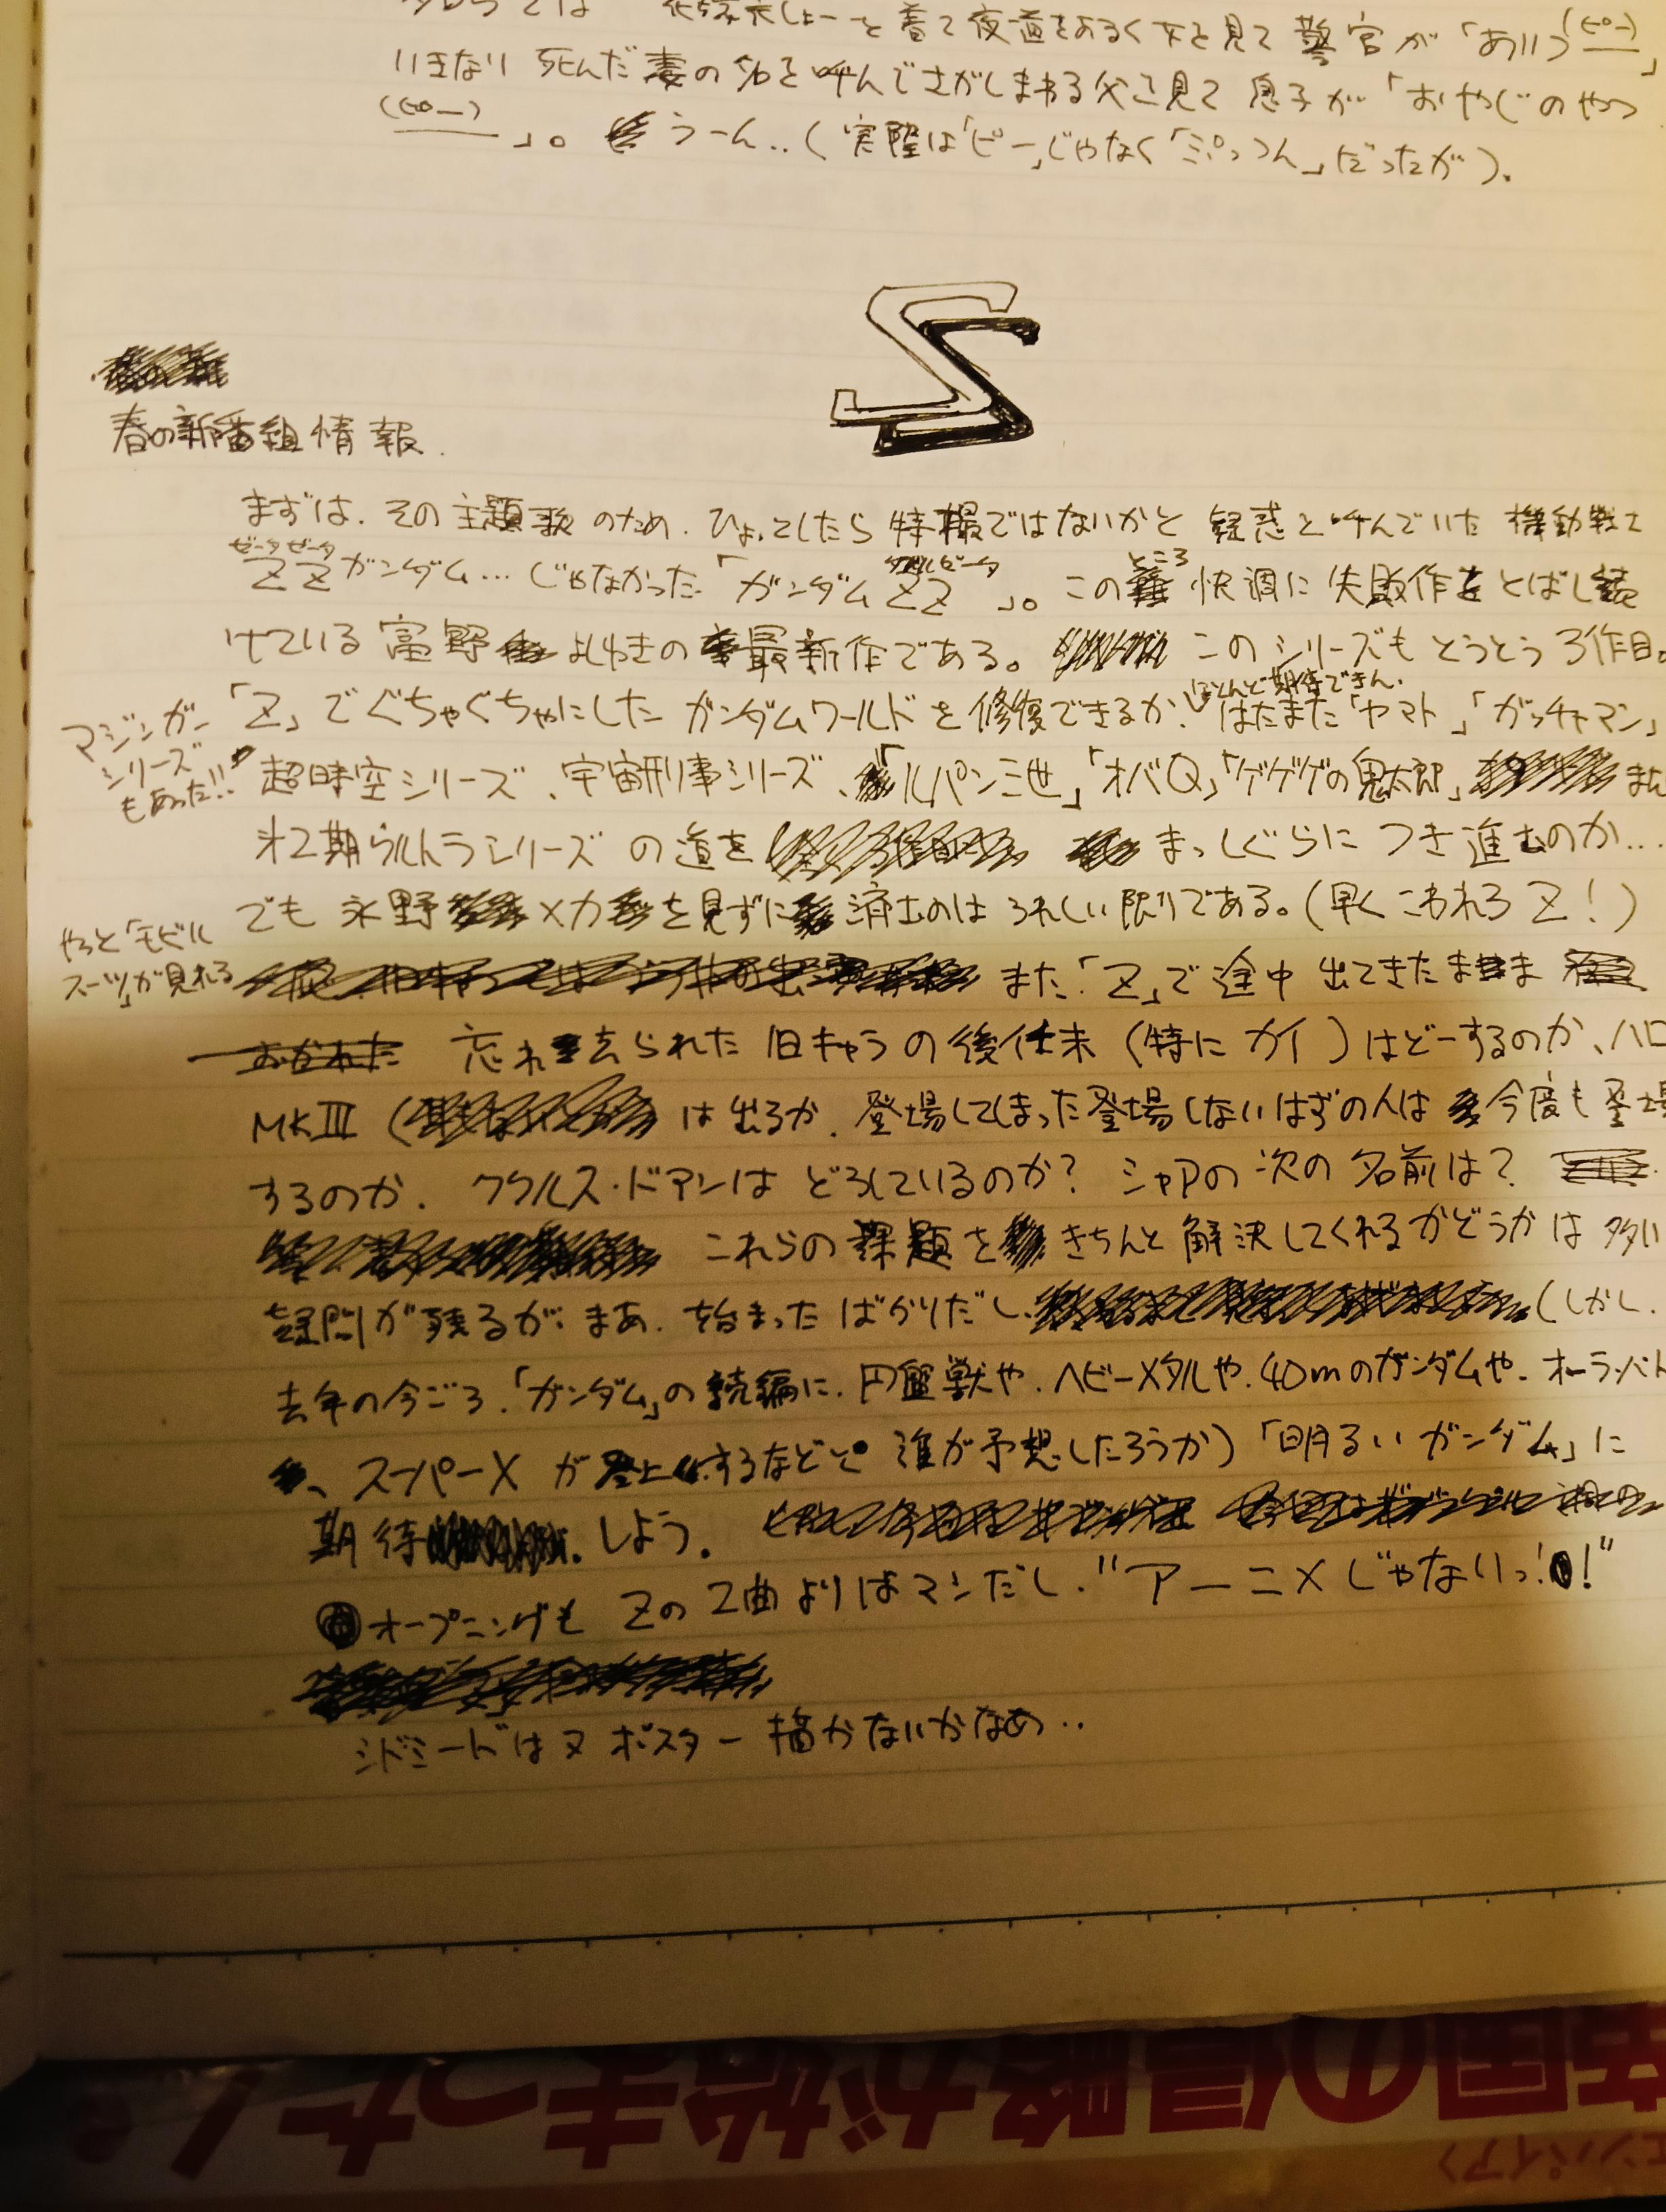 を着て夜道をあるく女を見て警官が「あいつ(ピー)」
いきなり死んだ妻の名を呼んでさがしまわる父を見て息子が「おやじのやつ
(ピー)」。うーん‥(実際は「ピー」じゃなく「ぷっつん」だったが)。
Z
春の新番組情報.
まずは、その主題歌のため、ひょっとしたら特撮ではないかと疑惑を呼んでいた機動戦士
ZZガンダム…じゃなかった「ガンダムZZ」。このところ快調に失敗作をとばし続
ゼータゼータ
ダブルゼータ
けている富野よしゆきの最新作である。このシリーズもとうとう3作目。
「Z」でぐちゃぐちゃにしたガンダムワールドを修復できるか、はたまた「ヤマト」「ガッチャマン」
ほとんど期待できん.
マジンガーシリーズもあった!!
超時空シリーズ、宇宙刑事シリーズ、「ルパン三世」「オバQ」「ゲゲゲの鬼太郎」
才2期ウルトラシリーズの道をまっしぐらにつき進むのか…
でも永野メカを見ずに済むのはうれしい限りである。(早くこわれろZ!)
やっと「モビルスーツ」が見れる
また「Z」で途中出てきたまま
忘れ去られた旧キャラの後仕末(特にカイ)はどーするのか、ハロ
MKIII(は出るか、登場してしまった登場しないはずの人は今度も登場
するのか、ククルス・ドアンはどうしているのか?シャアの次の名前は?
これらの課題をきちんと解決してくれるかどうかは多い
疑問が残るが、まあ、始まったばかりだし、(しかし、
去年の今ごろ、「ガンダム」の続編に、円盤獣や、ヘビーメタルや、40mのガンダムや、オーラ・バト
、スーパーXが登場するなどと誰が予想したろうか)「明るいガンダム」に
期待しよう。
オープニングもZの2曲よりはマシだし、"アーニメじゃないっ!!"
シドミードはヌポスター描かないかなあ‥
国の侵略が始まった!
エンパイア〉